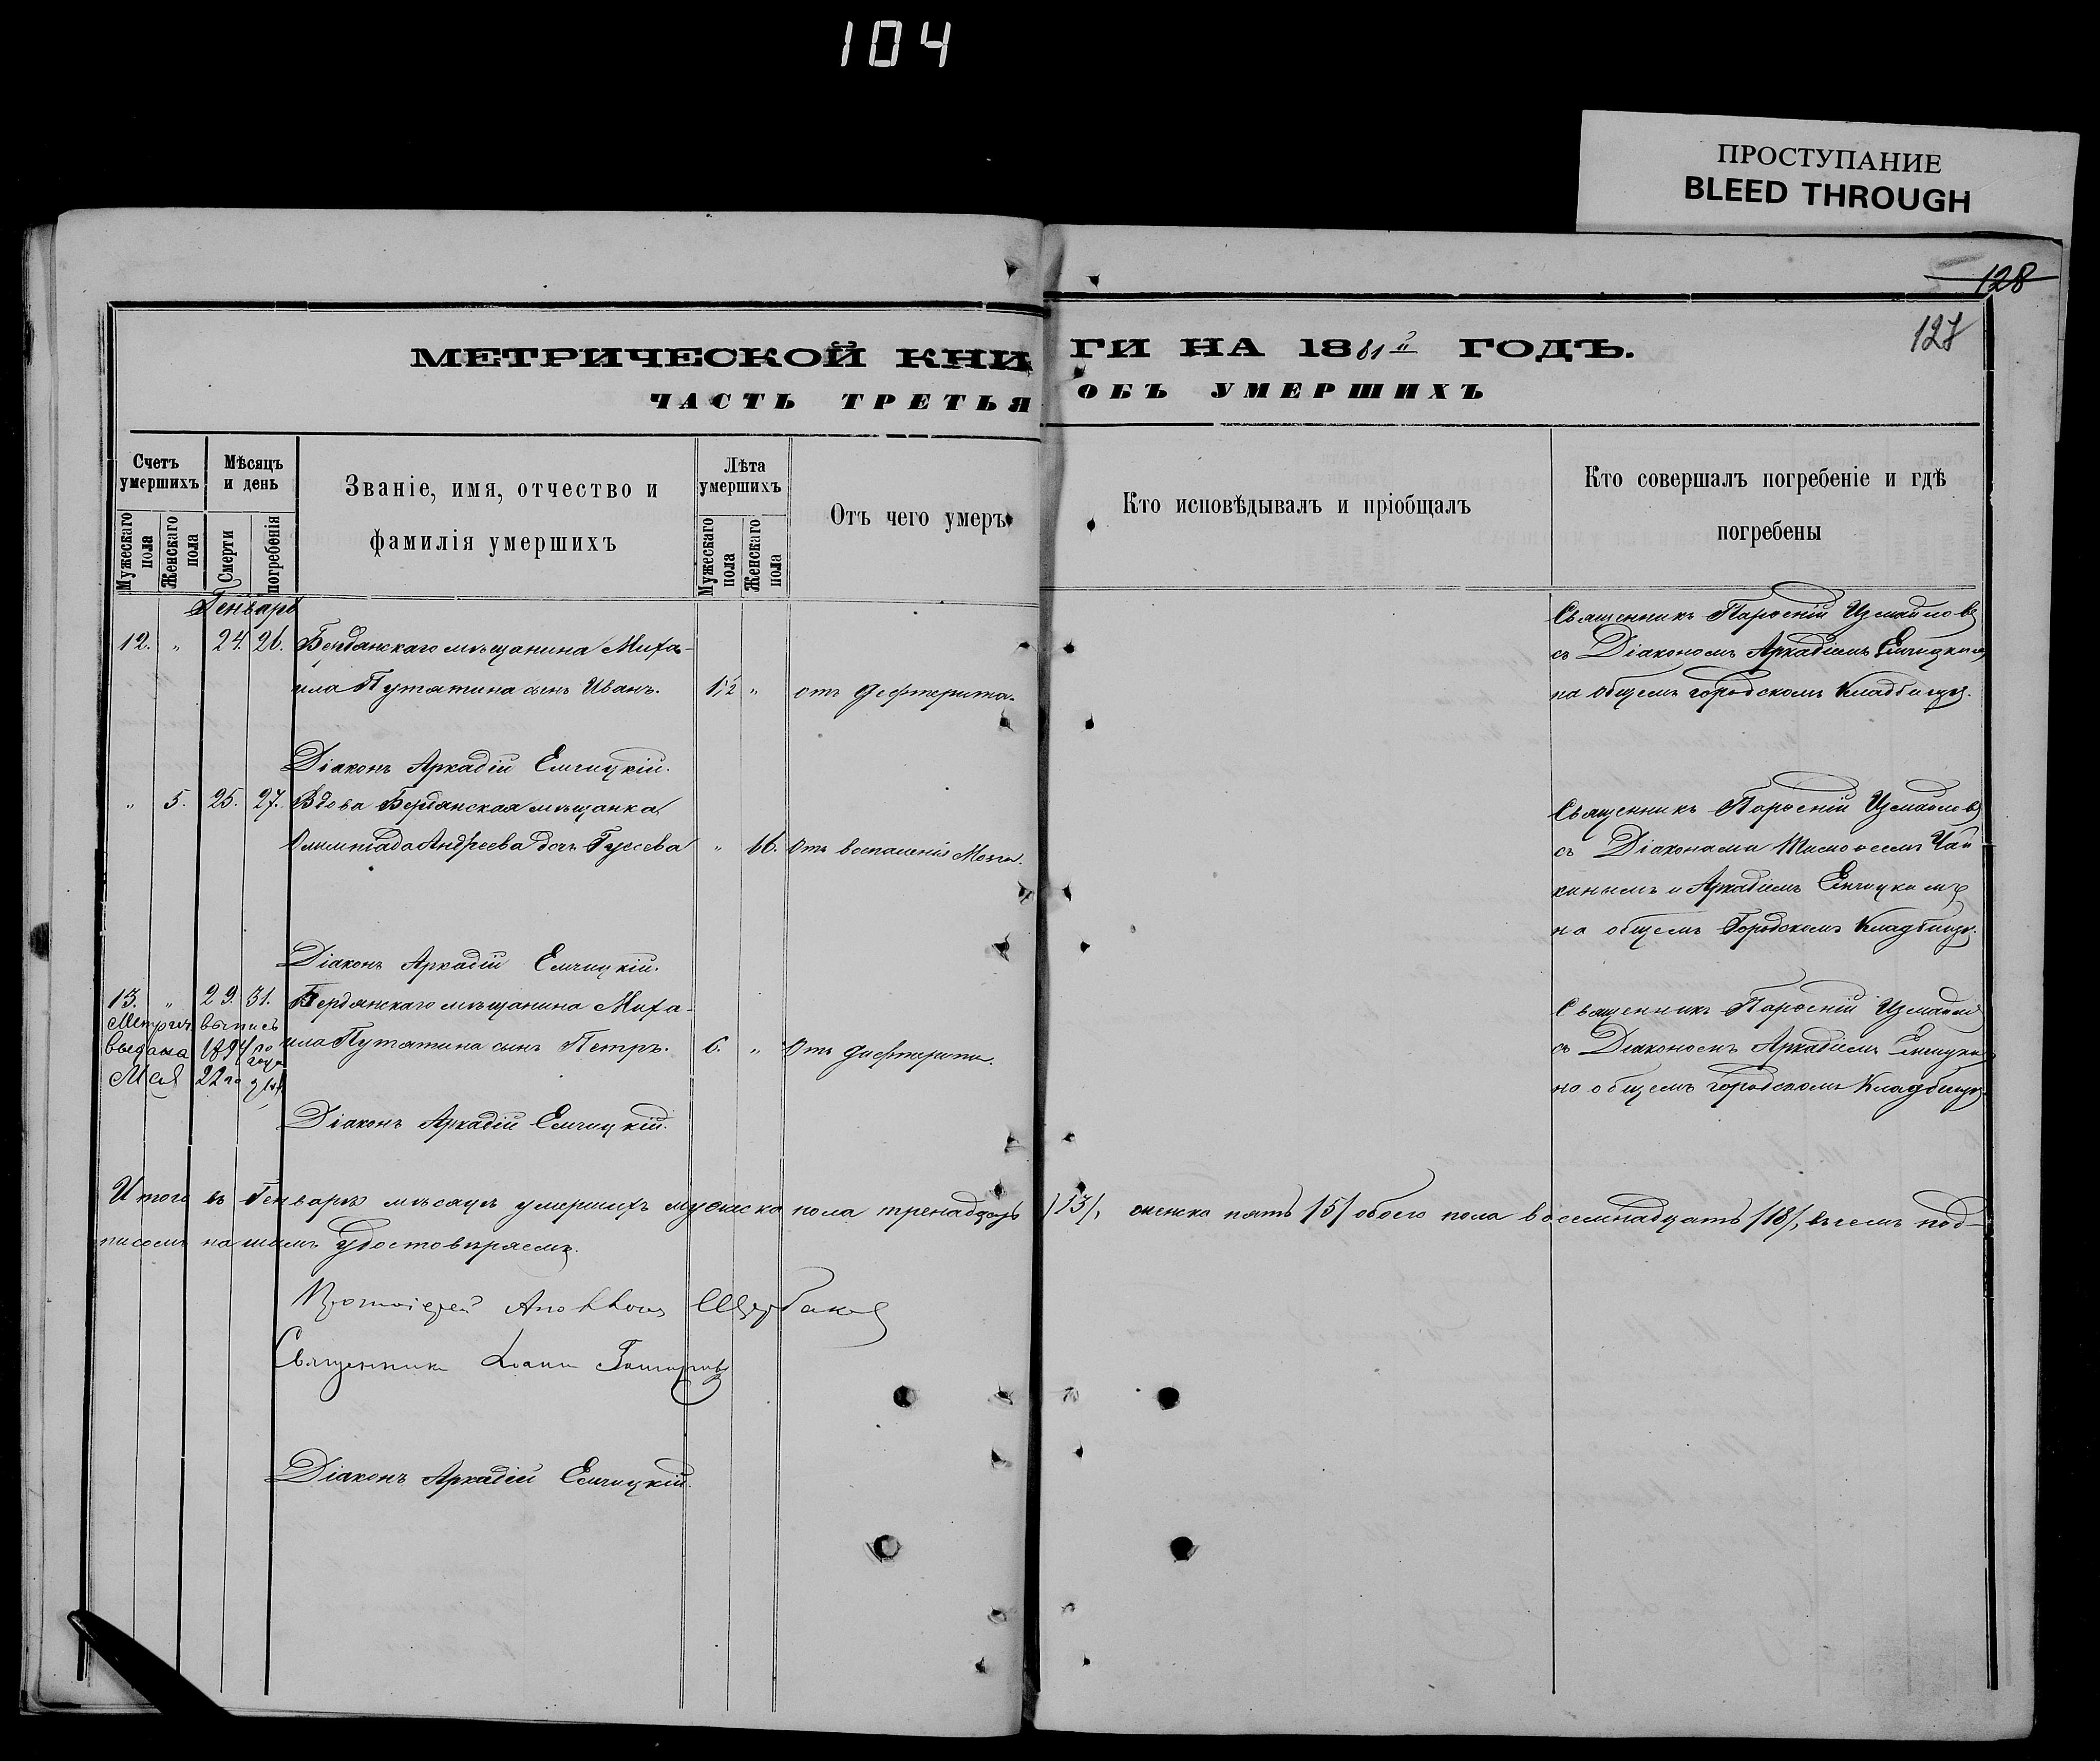 104
ПРОСТУПАНИЕ
BLEED THROUGH
128
127
МЕТРИЧЕСКОЙ КНИГИ НА 1881 ГОДЪ.
ЧАСТЬ ТРЕТЬЯ ОБЪ УМЕРШИХЪ
Счетъ умершихъ
Мужескаго пола
Женскаго пола
Мѣсяцъ и день
Смерти
погребенія
Званіе, имя, отчество и
фамилія умершихъ
Лѣта умершихъ
Мужескаго пола
Женскаго пола
Отъ чего умеръ
Кто исповѣдывалъ и пріобщалъ
Кто совершалъ погребеніе и гдѣ
погребены
Генварь
12. " 24. 26. Бердянскаго мѣщанина Миха-
ила Путятина сынъ Иванъ. 1½ " отъ дефтерита.
Священникъ Парѳеній Измайловъ
съ Діакономъ Аркадіемъ Емчицкимъ
на общемъ городскомъ Кладбищѣ.
Діаконъ Аркадій Емчицкій.
" 5. 25. 27. Вдова Бердянская мѣщанка
Олимпіада Андреева дочь Гусева " 66. Отъ воспаленія Мозга.
Священникъ Парѳеній Измайловъ
съ Діаконами Тимоѳеемъ Чай
кинымъ и Аркадіемъ Емчицкимъ
на общемъ Городскомъ Кладбищѣ.
Діаконъ Аркадій Емчицкій.
13. " 29. 31. Бердянскаго мѣщанина Миха-
ила Путятина сынъ Петръ. 6. " Отъ дифтерита.
Метрич. выпись
выдана 1894 го года
Мая 22 го дня
Священникъ Парѳеній Измайловъ
съ Діакономъ Аркадіемъ Емчицкимъ
на общемъ городскомъ Кладбищѣ.
Діаконъ Аркадій Емчицкій.
Итого въ Генварѣ мѣсяцѣ умершихъ мужеска пола тренадцать /13/, женска пять /5/ обоего пола восемнадцать /18/, въ чемъ под-
писомъ нашимъ удостовѣряемъ.
Протоіерей Щербаковъ
Священникъ Іоаннъ
Діаконъ Аркадій Емчицкій.